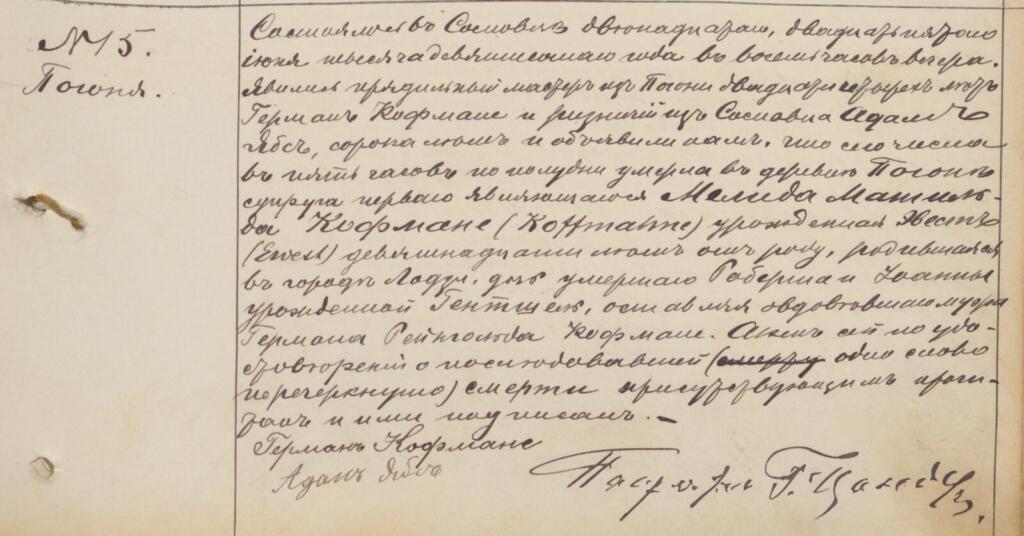 № 15.
Погоня.
Состоялось въ Сосновцѣ двѣнадцатаго, двадцать пятого
іюня тысяча девятисотаго года въ восемь часовъ вечера.
Явились прядильный мастеръ изъ Погони двадцати четырехъ лѣтъ
Германъ Кофмане и ризничій изъ Сосновца Адамъ
Ябсъ, сорока лѣтъ и объявили намъ, что сего числа
въ пять часовъ по полудни умерла въ деревнѣ Погонѣ
супруга перваго являющагося Мелида Матиль-
да Кофмане (Koffmahne) урожденная Эвестъ
(Ewest) девятнадцати лѣтъ отъ роду, родившаяся
въ городѣ Лодзи, дочь умершаго Роберта и Іоанны
урожденной Гентшель, оставляя овдовѣвшаго мужа
Германа Рейнгольда Кофмане. Актъ сей по удо-
стовѣреніи о послѣдовавшей (смерти одно слово
перечеркнуто) смерти присутствующимъ прочи-
танъ и ими подписанъ. —
Германъ Кофмане
Адамъ Ябсъ
Пасторъ Г.